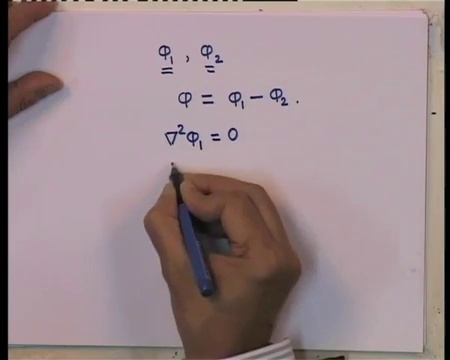 φ₁ , φ₂
φ = φ₁ − φ₂ .
∇²φ₁ = 0